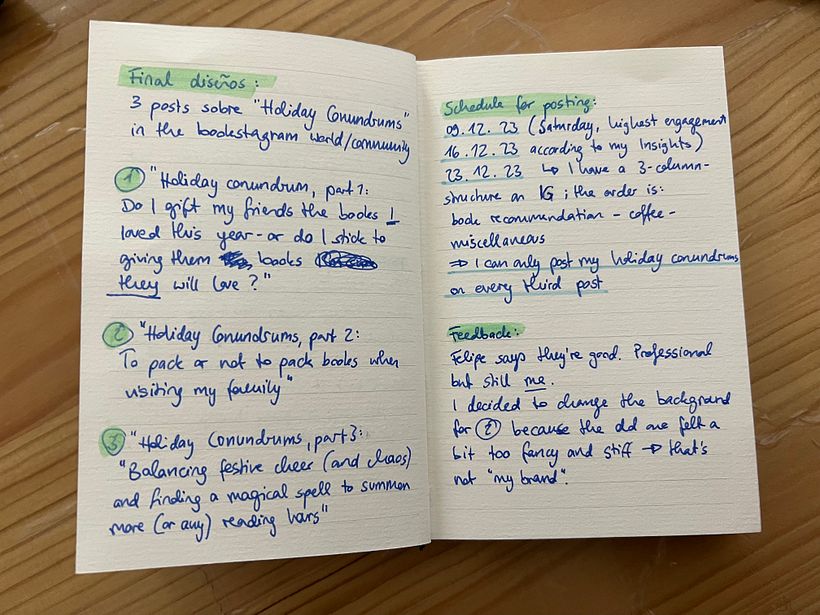 Final diseños:
3 posts sobre "Holiday Conundrums"
in the bookstagram world/community
1 "Holiday conundrum, part 1:
Do I gift my friends the books I
loved this year - or do I stick to
giving them books
they will love?"
2 "Holiday Conundrums, part 2:
To pack or not to pack books when
visiting my family"
3 "Holiday Conundrums, part 3:
"Balancing festive cheer (and chaos)
and finding a magical spell to summon
more (or any) reading hours"
Schedule for posting:
09.12.23 (Saturday, highest engagement
16.12.23 according to my Insights)
23.12.23 ↳ I have a 3-column-
structure on IG; the order is:
book recommendation - coffee -
miscellaneous
⇒ I can only post my holiday conundrums
on every third post
Feedback:
Felipe says they're good. Professional
but still me.
I decided to change the background
for 2 because the old one felt a
bit too fancy and stiff → that's
not "my brand".